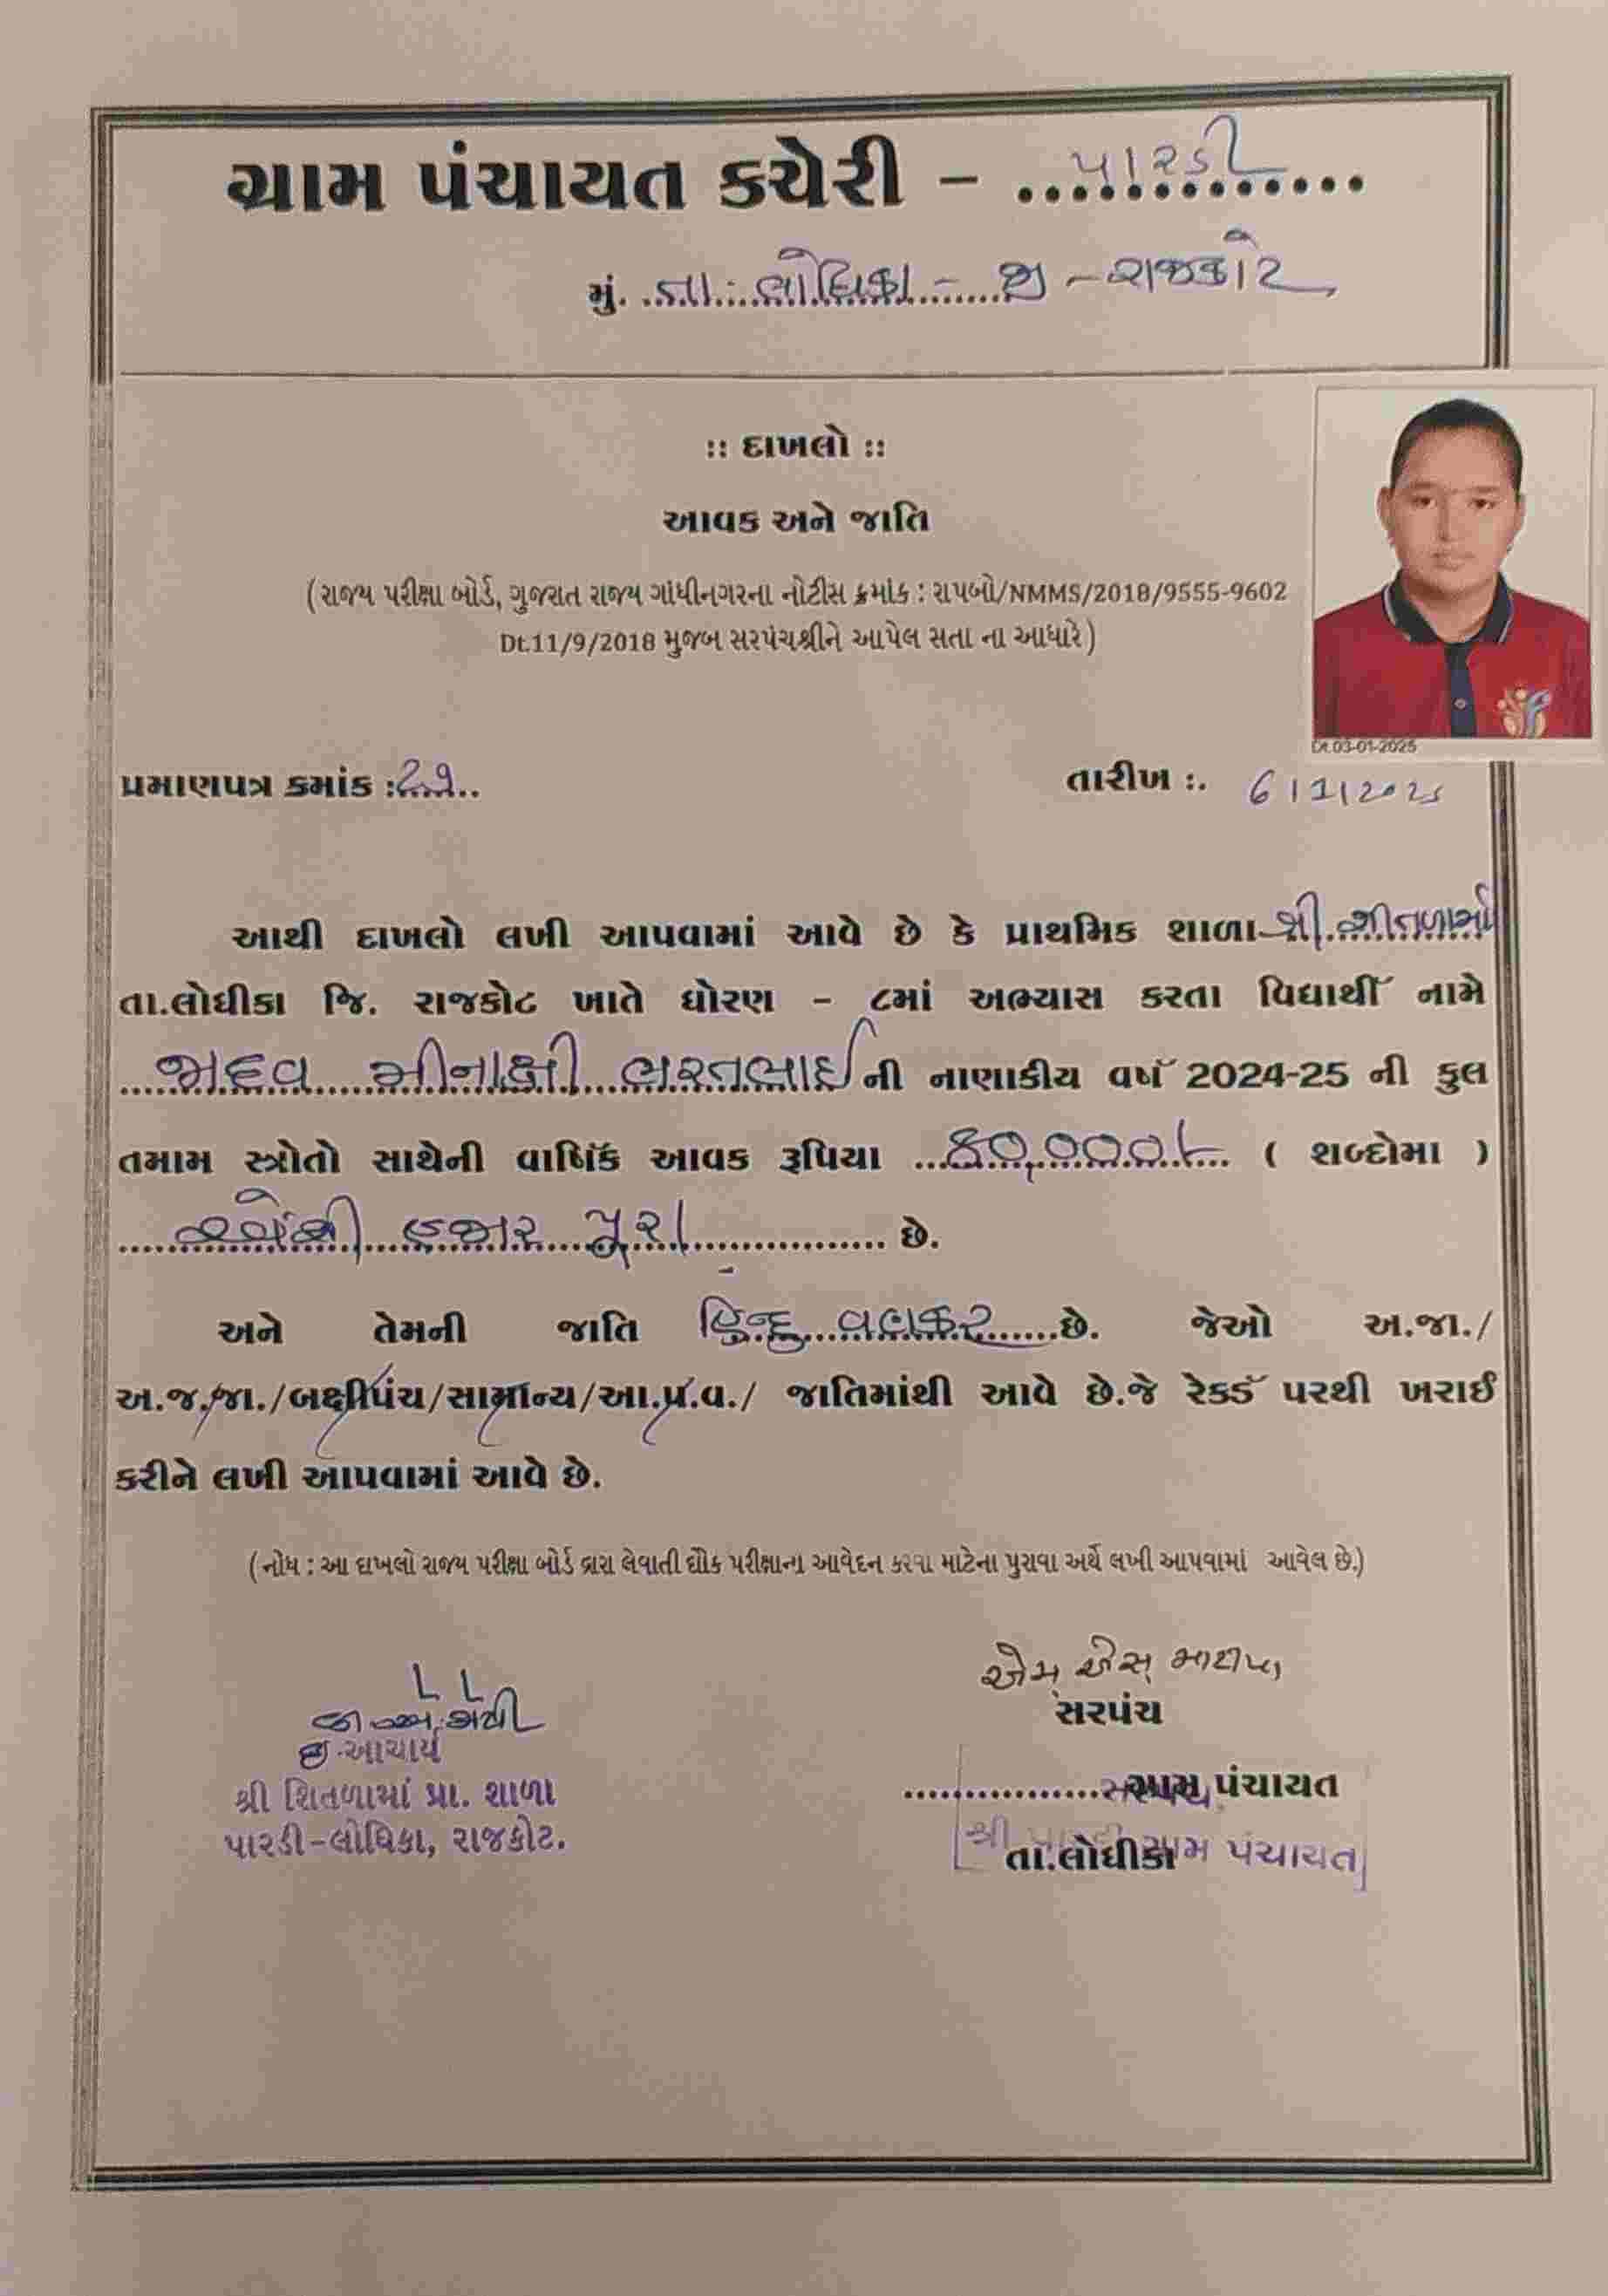 ગ્રામ પંચાયત કચેરી - પારડી
મું. તા. લોધિકા - જી - રાજકોટ
:: દાખલો ::
આવક અને જાતિ
(રાજ્ય પરીક્ષા બોર્ડ, ગુજરાત રાજ્ય ગાંધીનગરના નોટીસ ક્રમાંક : રાપબો/NMMS/2018/9555-9602
Dt.11/9/2018 મુજબ સરપંચશ્રીને આપેલ સતા ના આધારે)
Dt.03-01-2025
પ્રમાણપત્ર કમાંક :૨૭.. તારીખ :. 6/1/2025
આથી દાખલો લખી આપવામાં આવે છે કે પ્રાથમિક શાળા શ્રી શીતળામાં
તા.લોધીકા જિ. રાજકોટ ખાતે ધોરણ - ૮માં અભ્યાસ કરતા વિદ્યાર્થી નામે
જાદવ મીનાક્ષી ભરતભાઈ ની નાણાકીય વર્ષ 2024-25 ની કુલ
તમામ સ્ત્રોતો સાથેની વાર્ષિક આવક રૂપિયા ૪૦,૦૦૦/- ( શબ્દોમા )
હજાર પુરા છે.
અને તેમની જાતિ હિન્દુ વણકર છે. જેઓ અ.જા./
અ.જ.જા./બક્ષીપંચ/સામાન્ય/આ.પ્ર.વ./ જાતિમાંથી આવે છે.જે રેકર્ડ પરથી ખરાઈ
કરીને લખી આપવામાં આવે છે.
(નોધ : આ દાખલો રાજ્ય પરીક્ષા બોર્ડ દ્વારા લેવાતી પરીક્ષાના આવેદન કરવા માટેના પુરાવા અર્થે લખી આપવામાં આવેલ છે.)
એમ એસ
સરપંચ
ગ્રામ પંચાયત
તા.લોધીકા
શ્રી ગ્રામ પંચાયત
ઈ.આચાર્ય
શ્રી શિતળામાં પ્રા. શાળા
પારડી-લોધિકા, રાજકોટ.